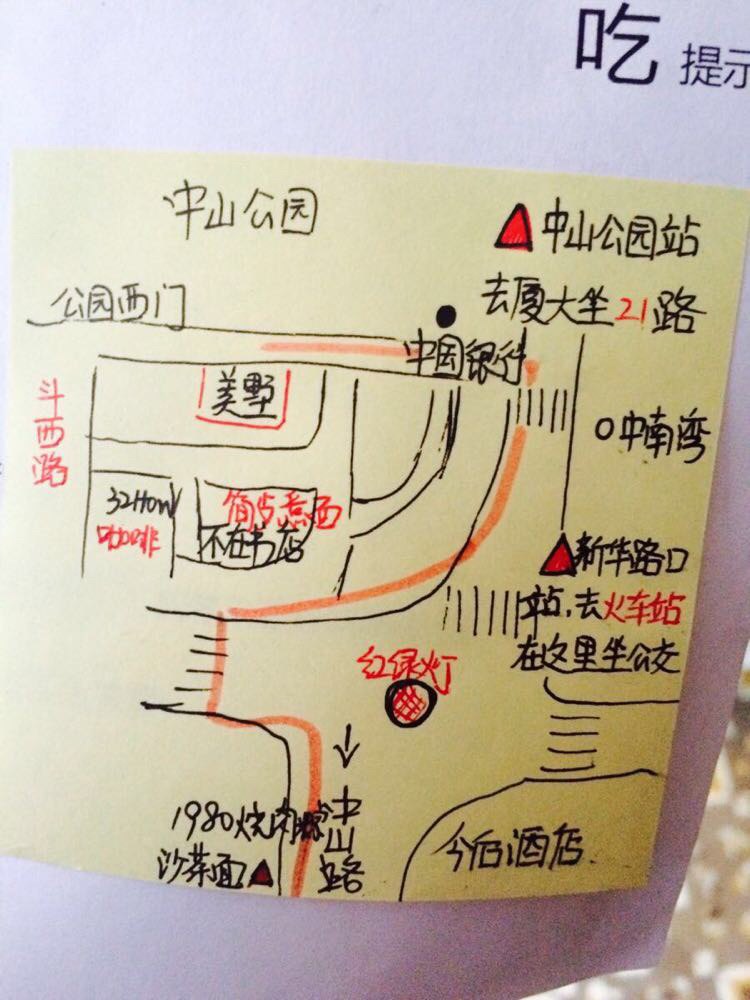 吃 提示
中山公园
中山公园站
去厦大坐21路
公园西门
中国银行
斗西路
美墅
中南湾
32How
咖啡
简步煮面
不在书店
新华路口
站,去火车站
在这里坐公交
红绿灯
1980烧肉粽
沙茶面
中山路
今佰酒店